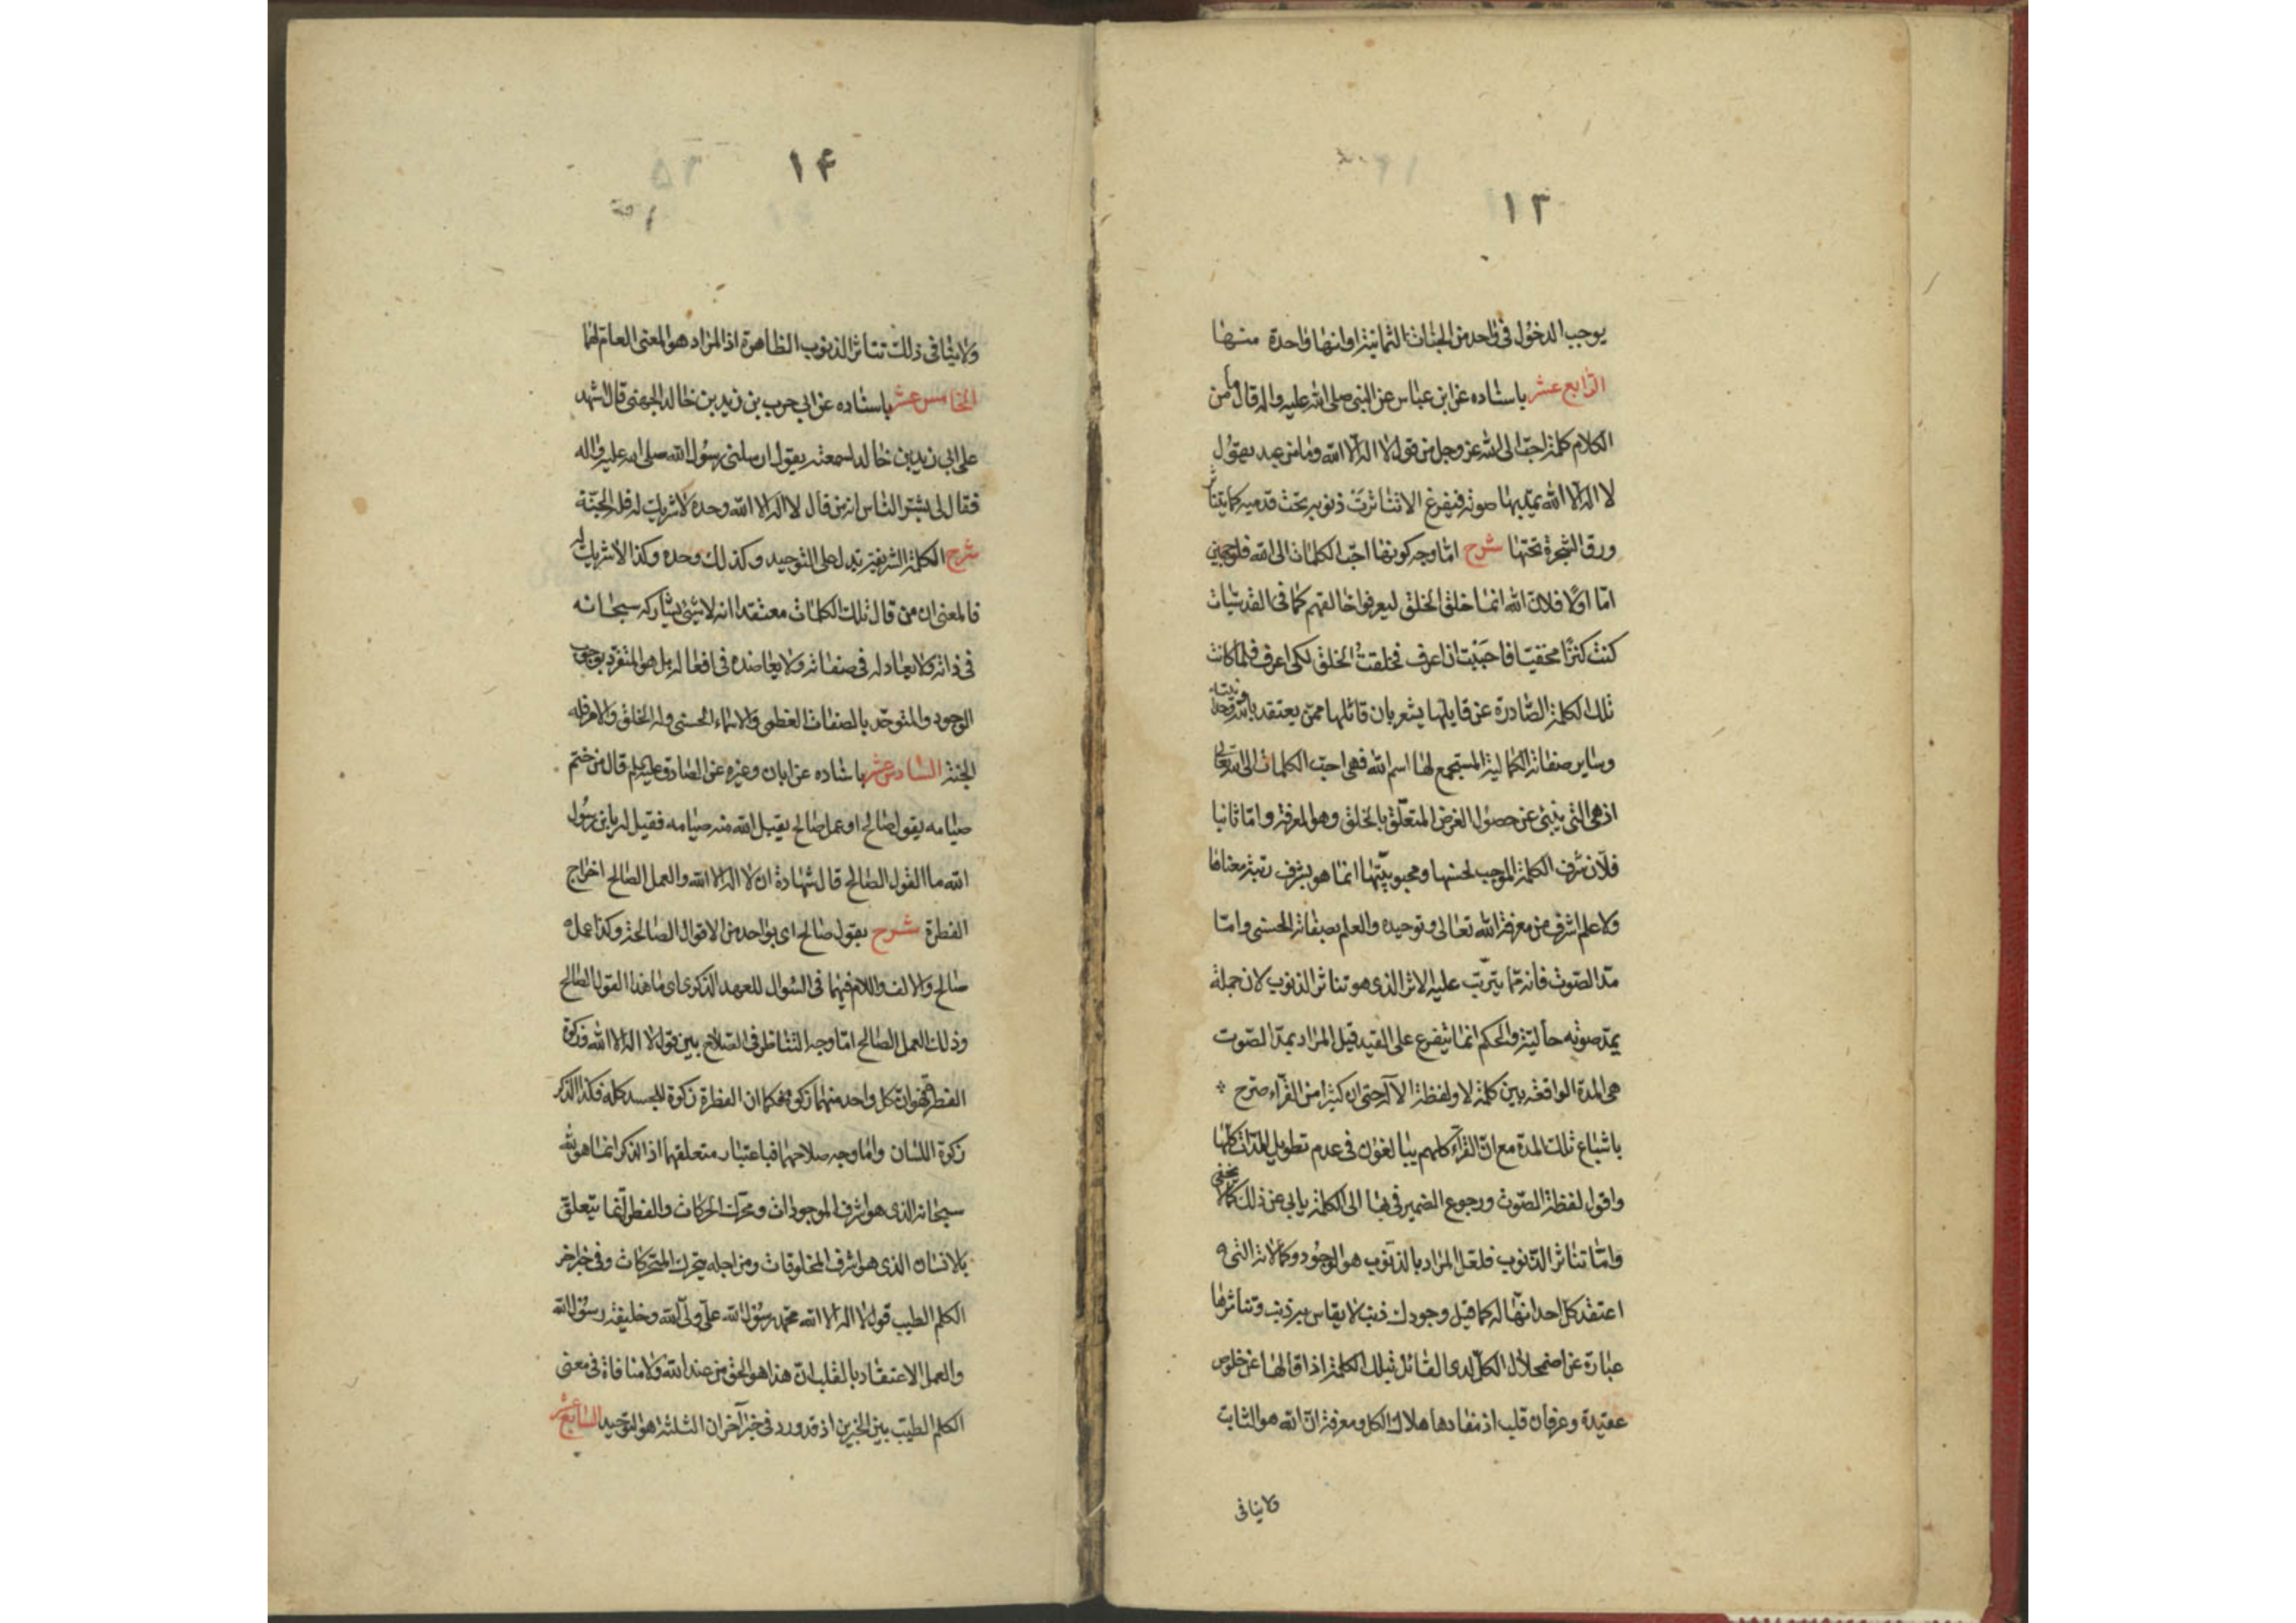 ۱۳
يوجب الدخول فى واحد من الجنات الثمانية او انها واحدة منها
الرابع عشر باسناده عن ابن عباس عن النبى صلى الله عليه واله قال ما من
الكلام كلمة احب الى الله عز وجل من قول لا اله الا الله وما من عبد يقول
لا اله الا الله يمد بها صوته فيفرغ الا تناثرت ذنوبه تحت قدميه كما يتناثر
ورق الشجرة تحتها شرح اما وجه كونها احب الكلمات الى الله فلوجهين
اما اولا فلان الله انما خلق الخلق ليعرفوا خالقهم كما فى القدسيات
كنت كنزا مخفيا فاحببت ان اعرف فخلقت الخلق لكى اعرف فلما كانت
تلك الكلمة الصادرة عن قايلها يشعر بان قائلها ممن يعتقد بالله
وساير صفاته الكمالية المستجمع لها اسم الله فهى احب الكلمات الى الله تعالى
اذ هى التى ينبئ عن حصول الغرض المتعلق بالخلق وهو المعرفة واما ثانيا
فلان شرف الكلمة الموجب لحسنها ومحبوبيتها انما هو بشرف رتبة معناها
ولا علم اشرف من معرفة الله تعالى وتوحيده والعلم بصفاته الحسنى واما
مد الصوت فانه مما يترتب عليه الاثر الذى هو تناثر الذنوب لان جملة
يمد صوته حالية والحكم انما يتفرع على القيد قيل المراد بمد الصوت
هى المدة الواقعة بين كلمة لا ولفظة الا اله حتى ان كثيرا من القراء صرح
باشباع تلك المدة مع ان القراء كلهم يبالغون فى عدم تطويل المدات كلها
واقول لفظة الصوت ورجوع الضمير فى بها الى الكلمة يابى عن ذلك كما لا يخفى
واما تناثر الذنوب فلعل المراد بالذنوب هو الوجود وكمالاته التى
اعتقد كل احد انها له كما قيل وجودك ذنب لا يقاس به ذنب وتناثرها
عبارة عن اضمحلال الكل لدى القائل بتلك الكلمة اذا قالها عن خلوص
عقيدة وعرفان قلب اذ مفادها هلاك الكل ومعرفة ان الله هو الثابت
ولا ينافى
۱۴
ولا ينافى ذلك تناثر الذنوب الظاهرة اذ المراد هو المعنى العام لهما
الخامس عشر باسناده عن ابى حرب بن زيد بن خالد الجهنى قال اشهد
على ابى زيد بن خالد لسمعته يقول ارسلنى رسول الله صلى الله عليه واله
فقال لى بشر الناس انه من قال لا اله الا الله وحده لا شريك له فله الجنة
شرح الكلمة الشريفة تدل على التوحيد وكذلك وحده وكذا لا شريك له
فالمعنى ان من قال تلك الكلمات معتقدا انه لا شئ يشاركه سبحانه
فى ذاته ولا يعادله فى صفاته ولا يعاضده فى افعاله بل هو المتفرد بوجوب
الوجود والمتوحد بالصفات العظمى والاسماء الحسنى وله الخلق والامر فله
الجنة السادس عشر باسناده عن ابان وغيره عن الصادق عليه السلم قال من ختم
صيامه بقول صالح او عمل صالح يقبل الله منه صيامه فقيل له يابن رسول
الله ما القول الصالح قال شهادة ان لا اله الا الله والعمل الصالح اخراج
الفطرة شرح بقول صالح اى بواحد من الاقوال الصالحة وكذا عمل
صالح والالف واللام فيهما فى السؤال للعهد الذكرى اى ما هذا القول الصالح
وذلك العمل الصالح اما وجه التناظر فى الصلاح بين قول لا اله الا الله وزكوة
الفطرة فهو ان كل واحد منهما زكوة فكما ان الفطرة زكوة للجسد كله فكذا الذكر
زكوة اللسان واما وجه صلاحهما فباعتبار متعلقهما اذ الذكر انما هو لله
سبحانه الذى هو اشرف الموجودات ومحرك الحركات والفطرة انما يتعلق
بالانسان الذى هو اشرف المخلوقات ومن اجله يتحرك المتحركات وفى خبر اخر
الكلم الطيب قول لا اله الا الله محمد رسول الله على ولى الله وخليفة رسول الله
والعمل الاعتقاد بالقلب ان هذا هو الحق من عند الله ولا منافاة فى معنى
الكلم الطيب بين الخبرين اذ قد ورد فى خبر آخر ان الثلثة هو التوحيد السابع عشر